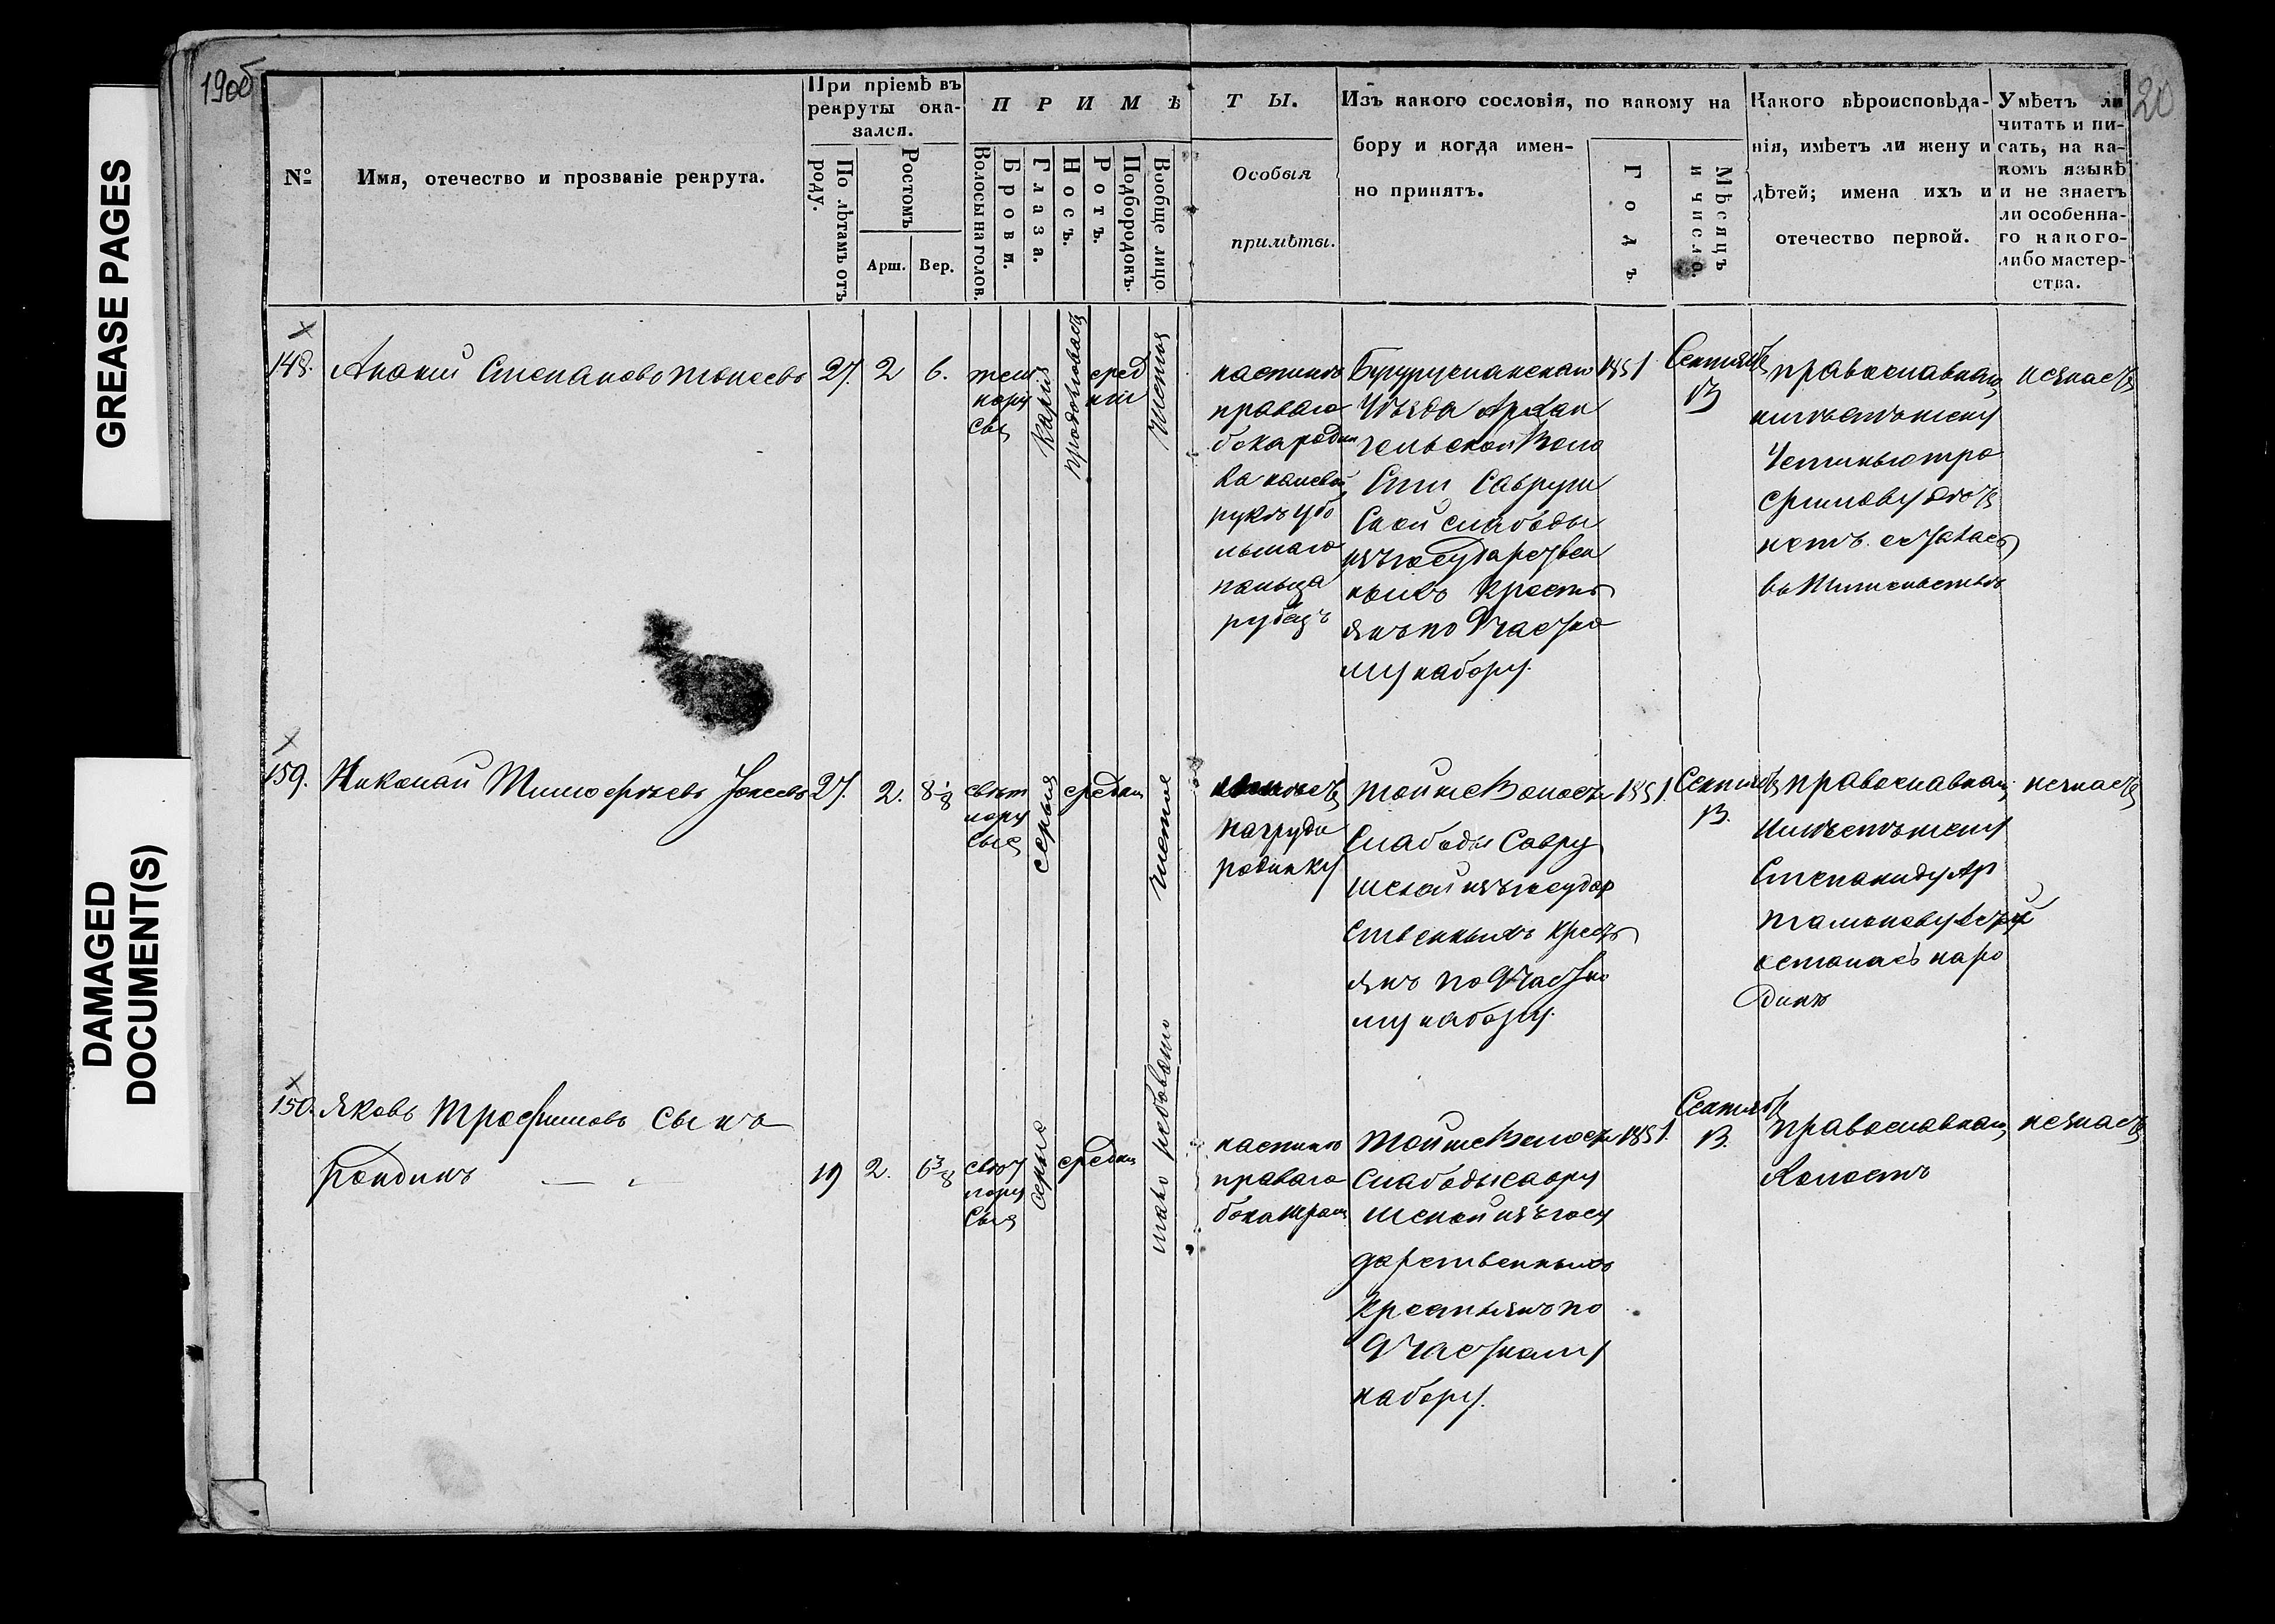 GREASE PAGES
DAMAGED
DOCUMENT(S)
19об
20
№
Имя, отечество и прозваніе рекрута.
При пріемѣ въ
рекруты ока-
зался.
По лѣтамъ отъ
роду.
Ростомъ
Арш.
Вер.
ПРИМѢ
ТЫ.
Волосы на голов.
Брови.
Глаза.
Носъ.
Ротъ.
Подбородокъ.
Вообще лицо.
Особыя
примѣты.
Изъ какого сословія, по какому на
бору и когда имен-
но принятъ.
Годъ.
Мѣсяцъ
и число.
Какого вѣроисповѣда-
нія, имѣетъ ли жену и
дѣтей; имена ихъ и
отечество первой.
Умѣетъ ли
читать и пи-
сать, на ка-
комъ языкѣ
и не знаетъ
ли особенна-
го какого-
либо мастер-
ства.
148.
Ананій Степановъ
27.
2
6.
тем
нору
сыя
Карія
продолговатъ
сред
ній
чистое
правого
бока родин
ка на левой
руке у бо
льшаго
пальца
рубецъ
Бугурусланскаго
Уѣзда Архан
гельской Воло
сти Савруш
ской слабоды
изъ государствен
ныхъ Кресть
янъ по Участко
му набору.
1851
Сентяб
13
православнаго
имѣетъ жену
нетъ осталась
незнаетъ
159.
Николай Тимофѣевъ
27.
2.
8 1/8
свѣт
лору
сыя
серыя
средній
чистое
имѣетъ
на груди
родинку
той же Волости
Слабоды Савру
шской изъ государ
ственныхъ кресть
янъ по Участко
му набору.
1851.
Сентяб
13.
православнаго
Имѣетъ жену
Степаниду Ар
тамонову
осталась на ро
динѣ
незнаетъ
150.
Яковъ Трофимовъ сынъ
рондинъ
19
2.
6 3/8
свѣт
лору
сыя
серыя
средній
мало рябовато
правого
бока шрам
той же Волости
Слабоды Савру
шской изъ госу
дарственныхъ
Крестьянъ по
Участкому
набору.
1851.
Сентяб
13.
православнаго
Холостъ
незнаетъ